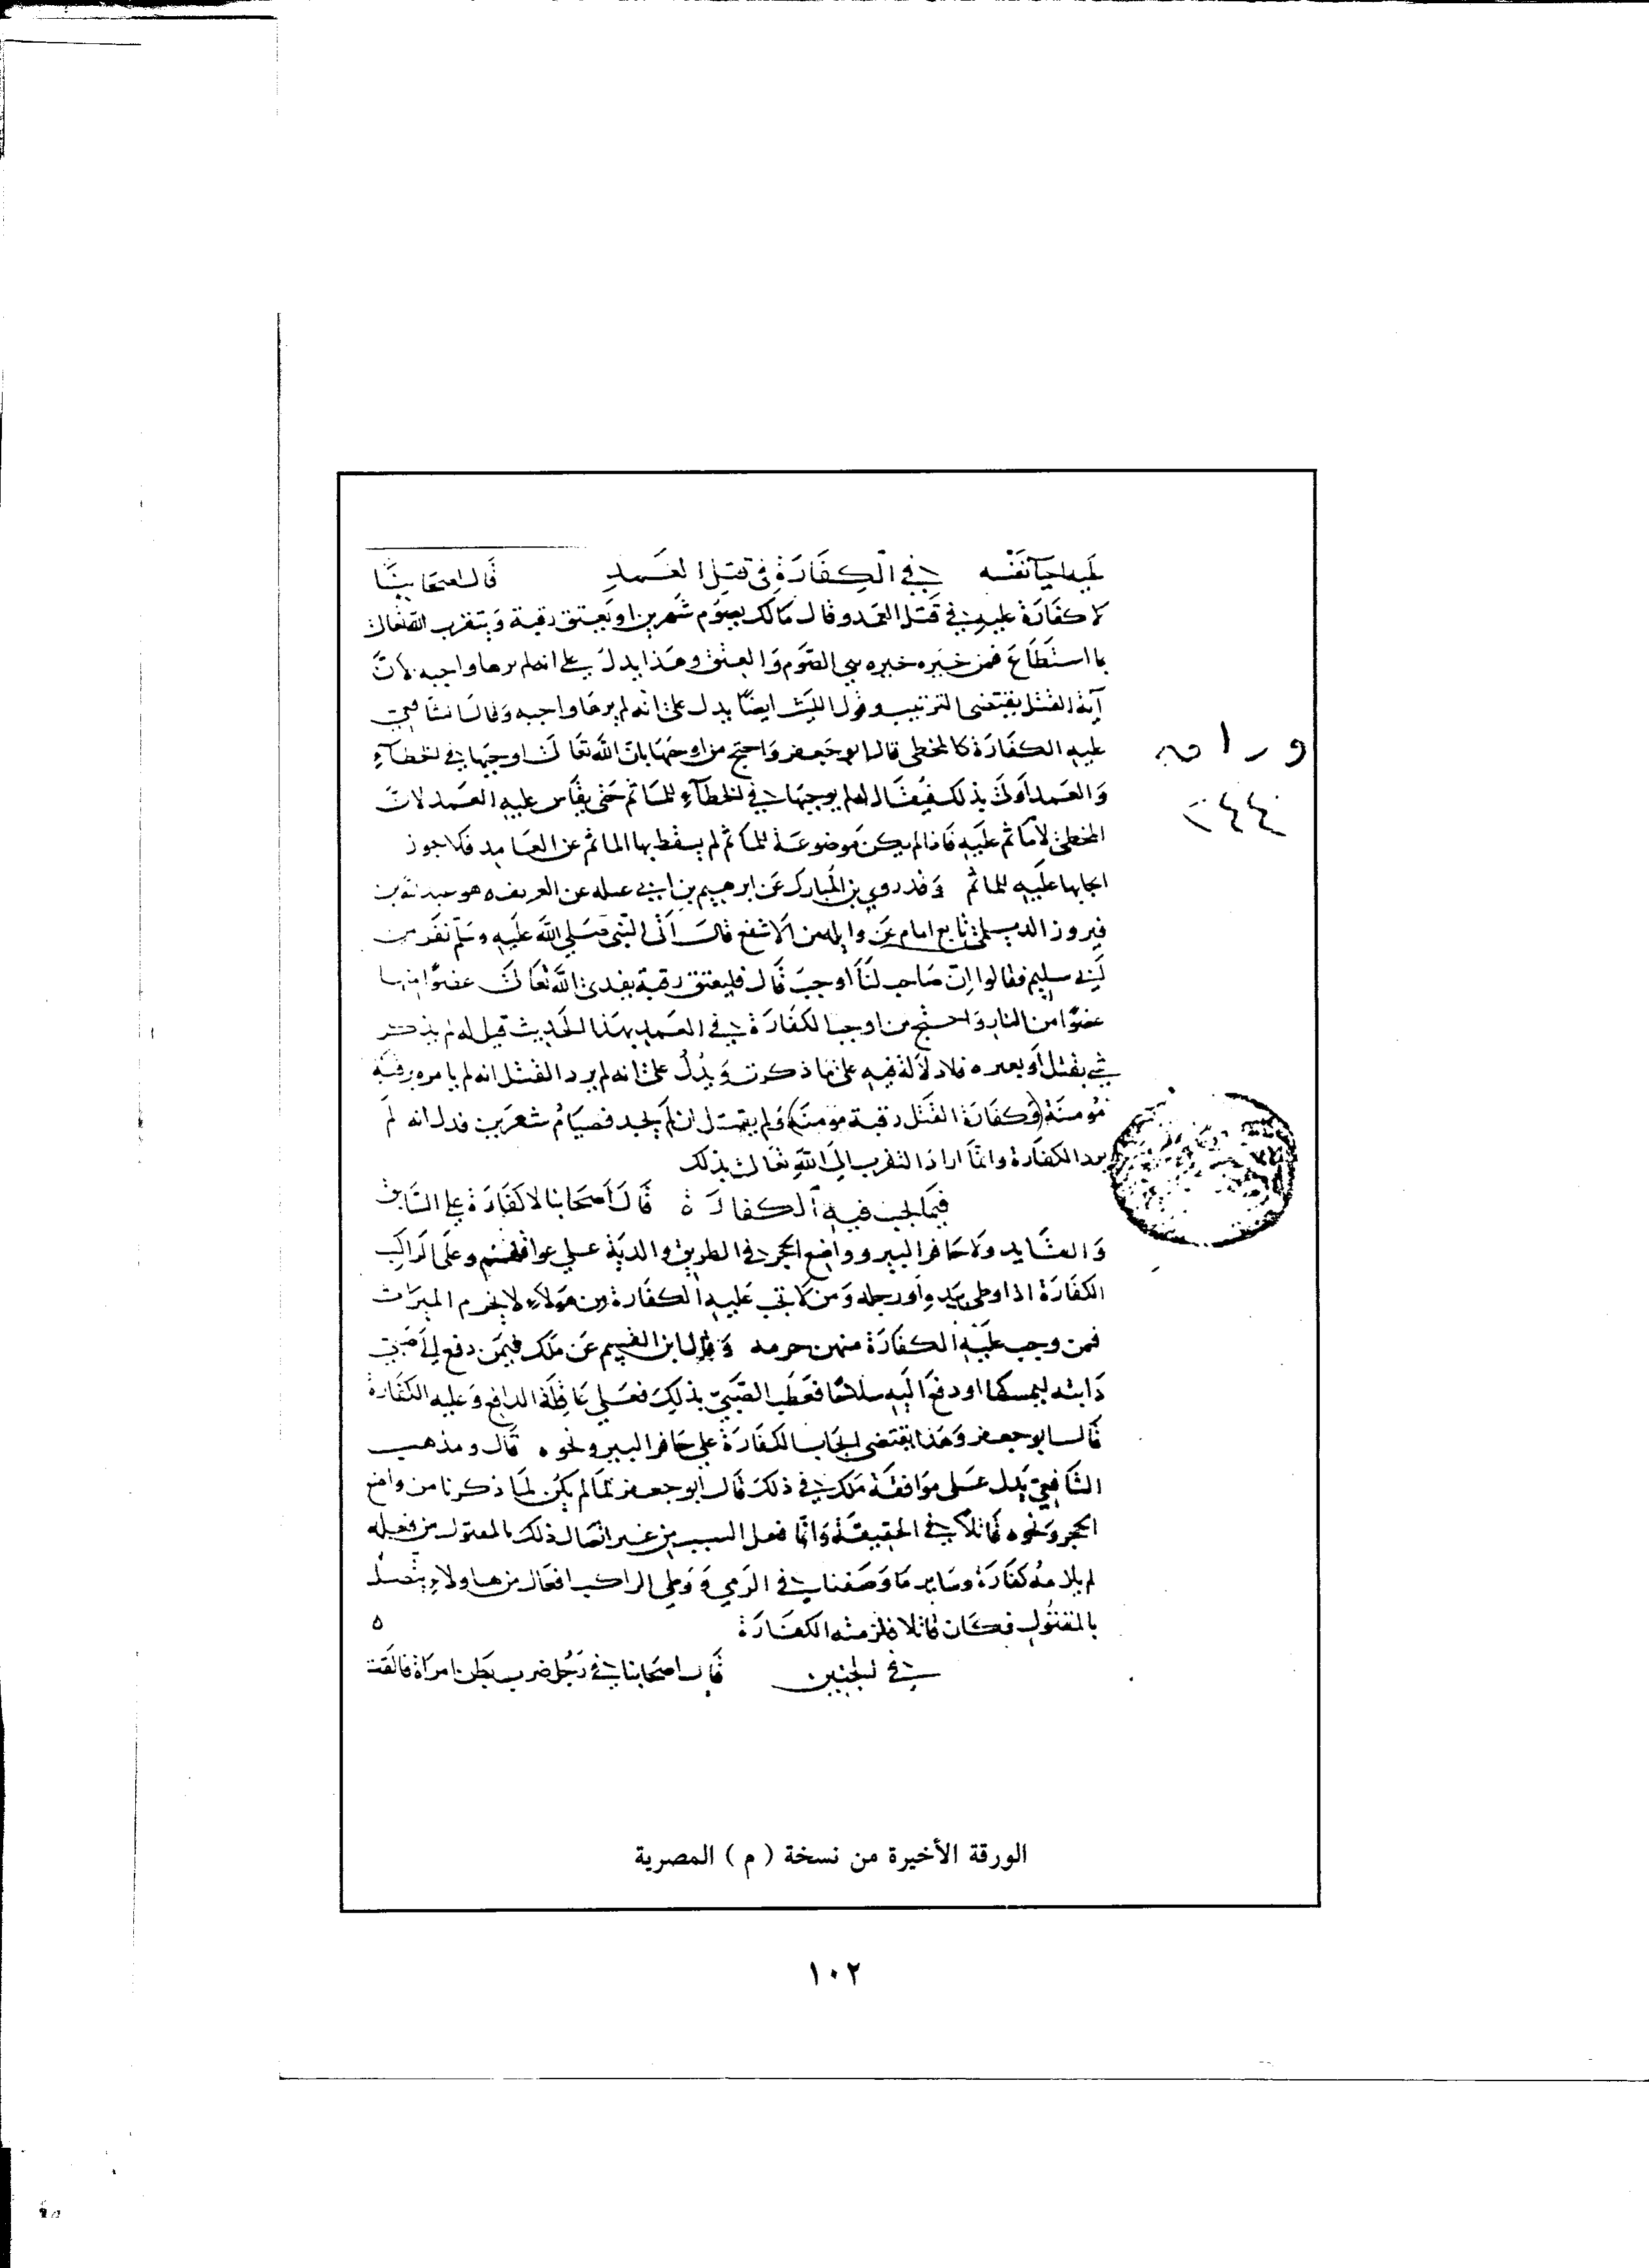 عليه احيا نفسه في الكفارة في قتل العمد قال اصحابنا
لا كفارة عليه في قتل العمد وقال مالك يصوم شهرين او يعتق رقبة ويتقرب الى الله تعالى
بما استطاع فمن خيره خيره بين الصوم والعتق وهذا يدل على انه لم يرها واجبه لان
آية القتل يقتضي الترتيب وقول الليث ايضا يدل على انه لم يرها واجبه وقال الشافعي
عليه الكفارة كالمخطي قال ابو جعفر واحتج من اوجبها بان الله تعالى اوجبها في الخطاء
والعمد اولى بذلك فيقال له لم يوجبها في الخطاء للماثم حتى يقاس عليه العمد لان
المخطئ لا ماثم عليه فاذا لم يكن موضوعة للماثم لم يسقط بها الماثم عن العامد فلا يجوز
ايجابها عليه للماثم وقد روى بن المبارك عن ابرهيم بن ابي عبله عن العريف هو عبد الله بن
فيروز الديلمي عن واثله بن الاسقع قال اتى النبي صلى الله عليه وسلم نفر من
بني سليم فقالوا ان صاحب لنا اوجب قال فليعتق رقبة يفدى الله تعالى عضوا منها
عضوا من النار واحتج من اوجب الكفارة في العمد بهذا الحديث قيل له لم يذكر
بقتل او بغيره فلا دلالة فيه على ما ذكرت ويدل على انه لم يرد القتل انه لم يامره برقبة
مؤمنة (وكفارة القتل رقبة مومنة) ولم يقل ان لم يجد فصيام شهرين فدل انه لم
يرد الكفارة وانما اراد التقرب الى الله تعالى بذلك
فيما يجب فيه الكفارة قال اصحابنا لا كفارة على السابق
والقايد ولا حافر البير وواضع الحجر في الطريق والدية على عواقلهم وعلى الراكب
الكفارة اذا وطى بيد او رجله ومن لا تجب عليه الكفارة من هولاء لا يحرم الميراث
فمن وجب عليه الكفارة منهن حرمه وقال ابن القسيم عن ملك فيمن دفع الى صبي
دابته ليمسكها او دفع اليه سلاحا فعطب الصبي بذلك فعلى عاقلة الدافع وعليه الكفارة
قال ابو جعفر وهذا يقتضي ايجاب الكفارة على حافر البير ونحوه قال ومذهب
الشافعي يدل على موافقة ملك في ذلك قال ابو جعفر لما لم يكن لما ذكرنا من واضع
الحجر ونحوه قاتلا في الحقيقة وانما فعل السبب من غير اتصال ذلك بالمقتول من فعله
لم يلزمه كفارة وساير ما وصفنا في الرمي ووطي الراكب افعال من هاولاء يتصل
بالمقتول فكان قاتلا فلزمته الكفارة ه
في الجنين قال اصحابنا في رجل ضرب بطن امراة فالقت
الورقة الأخيرة من نسخة ( م ) المصرية
١٠٢